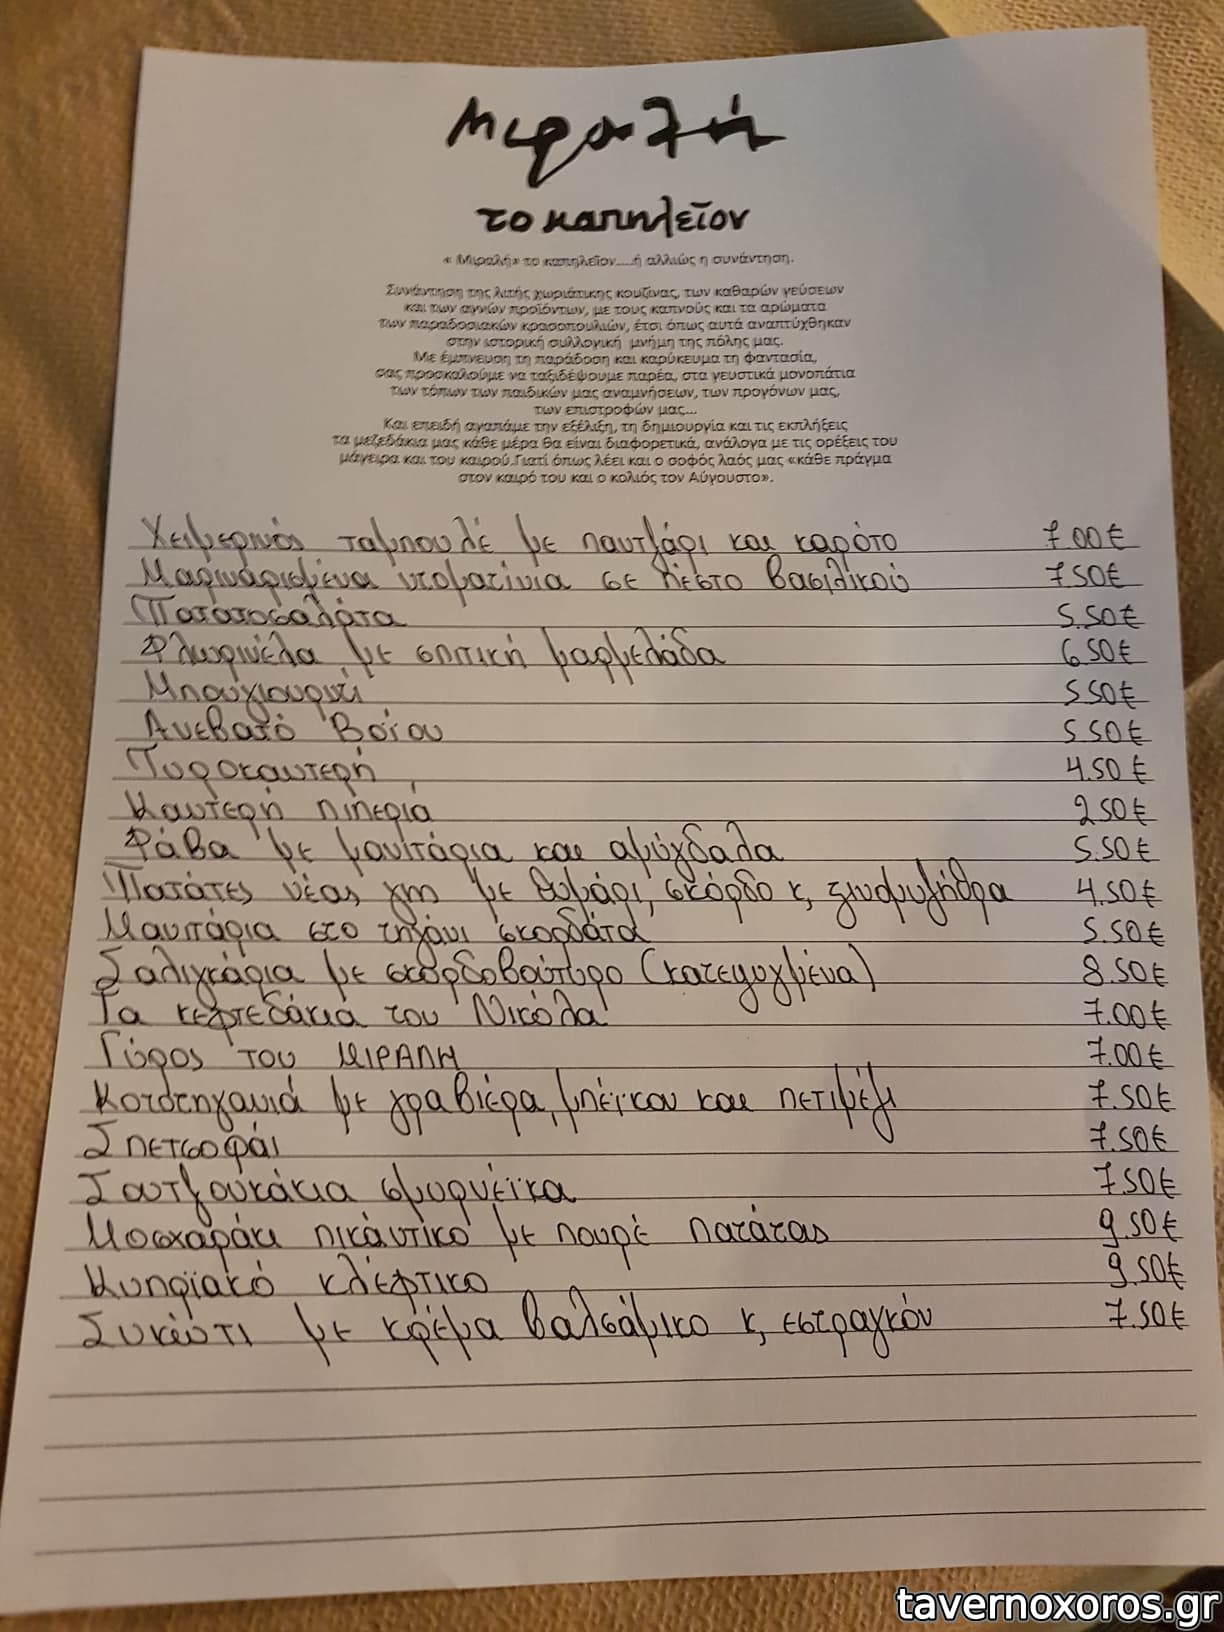 Μιραλή
το καπηλεῖον
« Μιραλή» το καπηλεῖον.....ή αλλιώς η συνάντηση.
Συνάντηση της λιτής χωριάτικης κουζίνας, των καθαρών γεύσεων
και των αγνών προϊόντων, με τους καπνούς και τα αρώματα
των παραδοσιακών κρασοπουλιών, έτσι όπως αυτά αναπτύχθηκαν
στην ιστορική συλλογική μνήμη της πόλης μας.
Με έμπνευση τη παράδοση και καρύκευμα τη φαντασία,
σας προσκαλούμε να ταξιδέψουμε παρέα, στα γευστικά μονοπάτια
των τόπων των παιδικών μας αναμνήσεων, των προγόνων μας,
των επιστροφών μας...
Και επειδή αγαπάμε την εξέλιξη, τη δημιουργία και τις εκπλήξεις
τα μεζεδάκια μας κάθε μέρα θα είναι διαφορετικά, ανάλογα με τις ορέξεις του
μάγειρα και του καιρού.Γιατί όπως λέει και ο σοφός λαός μας «κάθε πράγμα
στον καιρό του και ο κολιός τον Αύγουστο».
Χειμερινός ταμπουλέ με παυτζάρι και καρότο 7.00€
Μαρινάρισμένα ντοματίνια σε πέστο βασιλικού 7.50€
Πατατοσαλάτα 5.50€
Φλωρινέλα με σπιτική μαρμελάδα 6.50€
Μπουγιουρντί 5.50€
Ανεβατό Βοΐου 5.50€
Τυροκαυτερή 4.50€
Καυτερή πιπεριά 2.50€
Φάβα με μανιτάρια και αμύγδαλα 5.50€
Πατάτες νέας γης με θυμάρι, σκόρδο κ, ξινομυζήθρα 4.50€
Μανιτάρια στο τηγάνι σκορδάτα 5.50€
Σαλιγκάρια με σκορδοβούτυρο (κατεψυγμένα) 8.50€
Τα κεφτεδάκια του Νικόλα 7.00€
Γύρος του ΜΙΡΑΛΗ 7.00€
Κοτοτηγανιά με γραβιέρα, μπέικον και πετιμέζι 7.50€
Σπετσοφάι 7.50€
Σουτζουκάκια σμυρνέϊκα 7.50€
Μοσχαράκι πικάντικο με πουρέ πατάτας 9.50€
Κυπρϊακό κλέφτικο 9.50€
Συκώτι με κρέμα βαλσάμικο κ, εστραγκόν 7.50€
tavernoxoros.gr